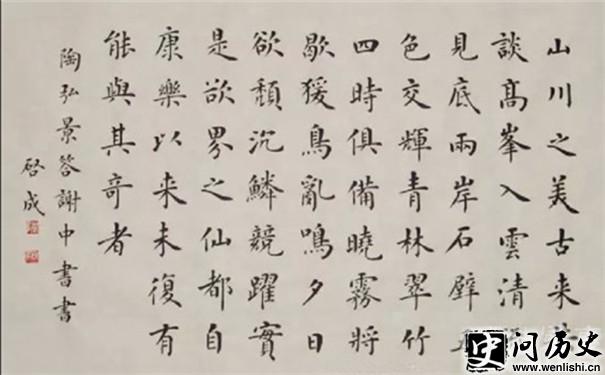 山川之美古来
談高峯入雲清
見底兩岸石壁五
色交輝青林翠竹
四時俱備曉霧將
歇猨鳥亂鳴夕日
欲頹沉鱗競躍實
是欲界之仙都自
康樂以来未復有
能與其奇者
陶弘景答謝中書書
啓成
史问历史
www.wenlishi.cn